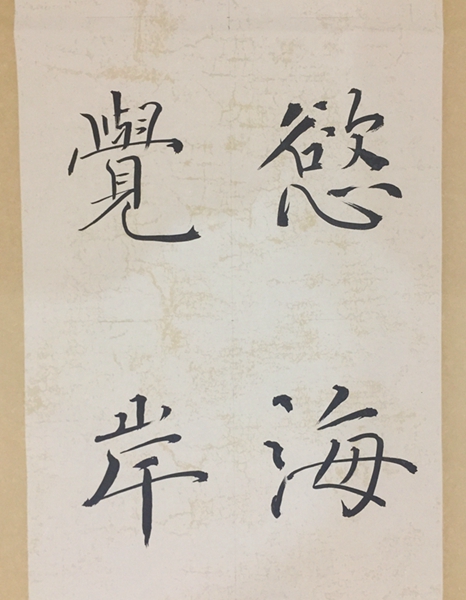 慾海
覺岸